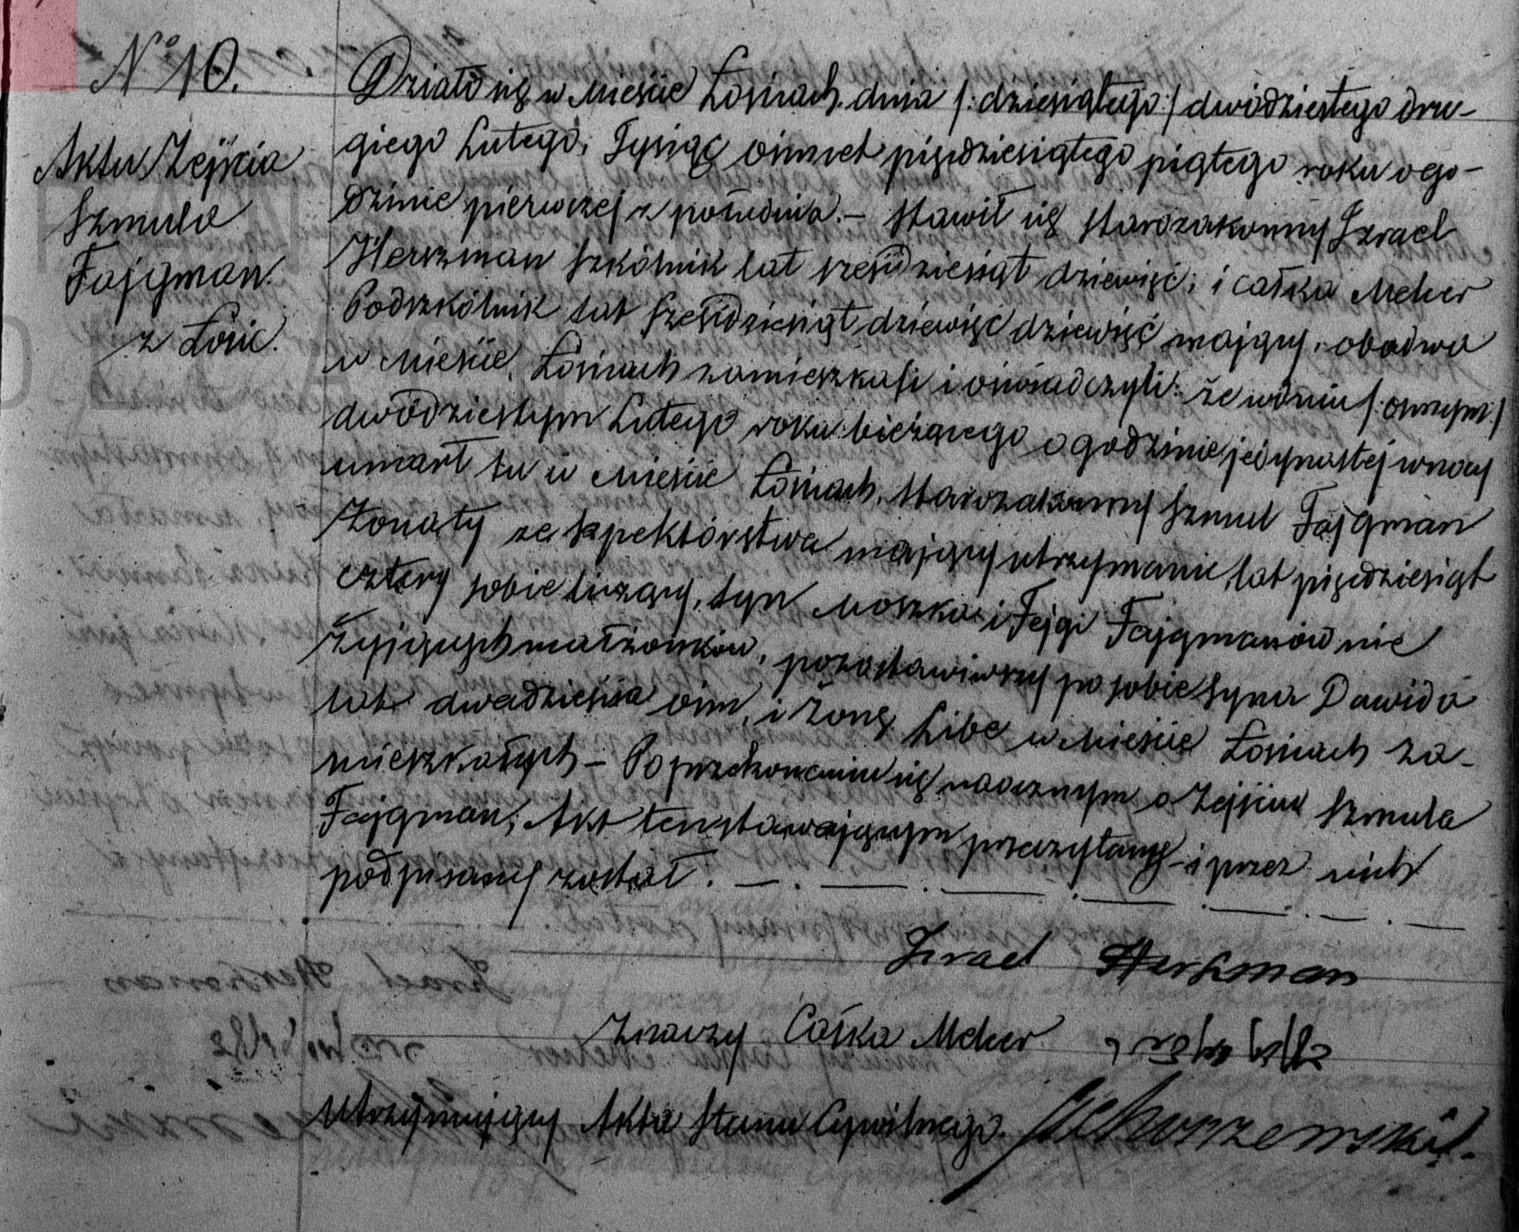 N° 10.
Aktu Zejścia
Szmula
Fajgman.
z Łosic.
Działo się w Mieście Łosicach dnia /: dziesiątego :/ dwódziestego dru-
giego Lutego, Tysiąc ośmset pięśdziesiątego piątego roku o go-
dzinie pierwszej z południa. – Stawił się Starozakonny Izrael
Herszman Szkólnik lat sześdziesiąt dziewięć; i Całka Meker
Podszkólnik lat sześdziesiąt dziewięć dziewięć mający, obadwa
w Mieście Łosicach zamieszkali i oświadczyli: że w dniu /: osmym :/
dwódziestym Lutego roku bieżącego o godzinie jedynastej w nocy
umarł tu w Mieście Łosicach, Starozakonny Szmul Fajgman
Żonaty ze spektórstwa mający utrzymanie lat pięśdziesiąt
cztery sobie liczący, syn Moszka i Fejgi Fajgmanów nie
żyjących małżonków, pozostawiwszy po sobie syna Dawida
lat dwadzieścia ośm, i Żonę Libe w Mieście Łosicach za-
mieszkałych – Po przekonaniu się naocznym o Zejściu Szmula
Fajgman, Akt ten stawającym przeczytany i przez nich
podpisany został.
Izrael Herszman
Znaczy Całka Meker
Utrzymujący Akta Stanu Cywilnego.